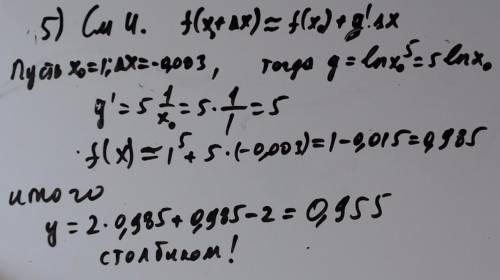 5) См 4. f(x₀+Δx)≈f(x₀)+g'Δx
Пусть x₀=1; Δx=-0,003, тогда g=lnx₀⁵=5lnx₀
g'=5 1/x₀=5·1/1=5
f(x)≈1⁵+5·(-0,003)=1-0,015=0,985
итого
y=2·0,985+0,985-2=0,955
столбиком!